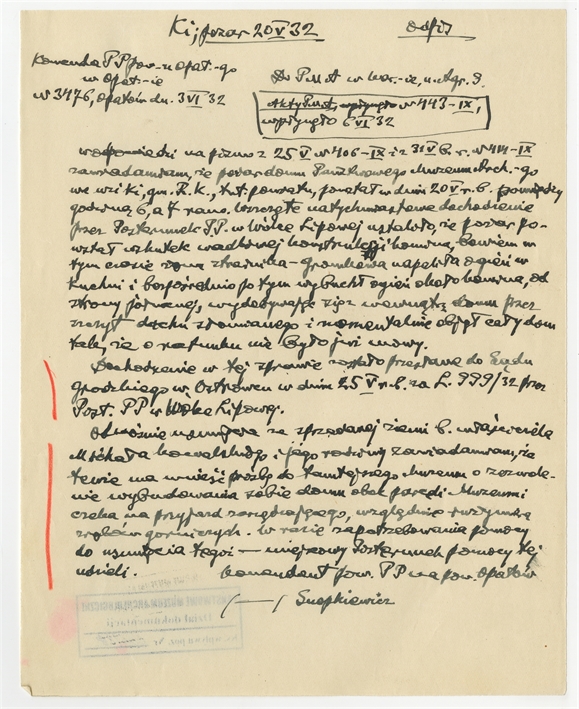 Ki; pożar 20 V 32 odpis
Komenda PP pow. w Opat.-go
w Opat.-ie
№ 3476, Opatów dn. 3 VI 32
Do PMA w War.-ie, u. Agr. 9.
Akty PMA, wpłynęło № 443-IX,
wpłynęło 6 VI 32
W odpowiedzi na pismo z 25 V № 406-IX i z 31 V b. r. № 414-IX
zawiadamiam, że pożar domu Państwowego Muzeum Arch.-go
we wsi, gm. R. K., tut. powiatu, powstał w dniu 20 V r. b. pomiędzy
godziną 6, a 7 rano. Wszczęte natychmiastowe dochodzenie
przez Posterunek PP. w Wólce Lipowej ustaliło, że pożar po-
wstał wskutek wadliwej konstrukcji komina, bowiem w
tym czasie żona strażnika - napaliła ogień w
kuchni i bezpośrednio po tym wybuchł ogień około komina, od
strony północnej, wydobywając się z wewnątrz domu przez
szczyt dachu słomianego i momentalnie objął cały dom
tak, iż o ratunku nie było już mowy.
Dochodzenie w tej sprawie zostało przesłane do Sądu
Grodzkiego w Ostrowcu w dniu 25 V r. b. za L. 999/32 przez
Post. PP w Wólce Lipowej.
Odnośnie usunięcia ze sprzedanej ziemi b. właściciela
Michała Kowalskiego i jego rodziny zawiadamiam, że
tenże ma wnieść prośbę do tamtejszego Muzeum o zezwole-
nie wybudowania sobie domu obok parceli Muzeum i
czeka na przyjazd zarządzającego, względnie
górniczych. W razie zapotrzebowania pomocy
do usunięcia tegoż — miejscowy Posterunek pomocy tej
udzieli. Komendant pow. PP na pow. Opatów
(—) Snopkiewicz
PAŃSTWOWE MUZEUM ARCHEOLOGICZNE
Dział dokumentacji